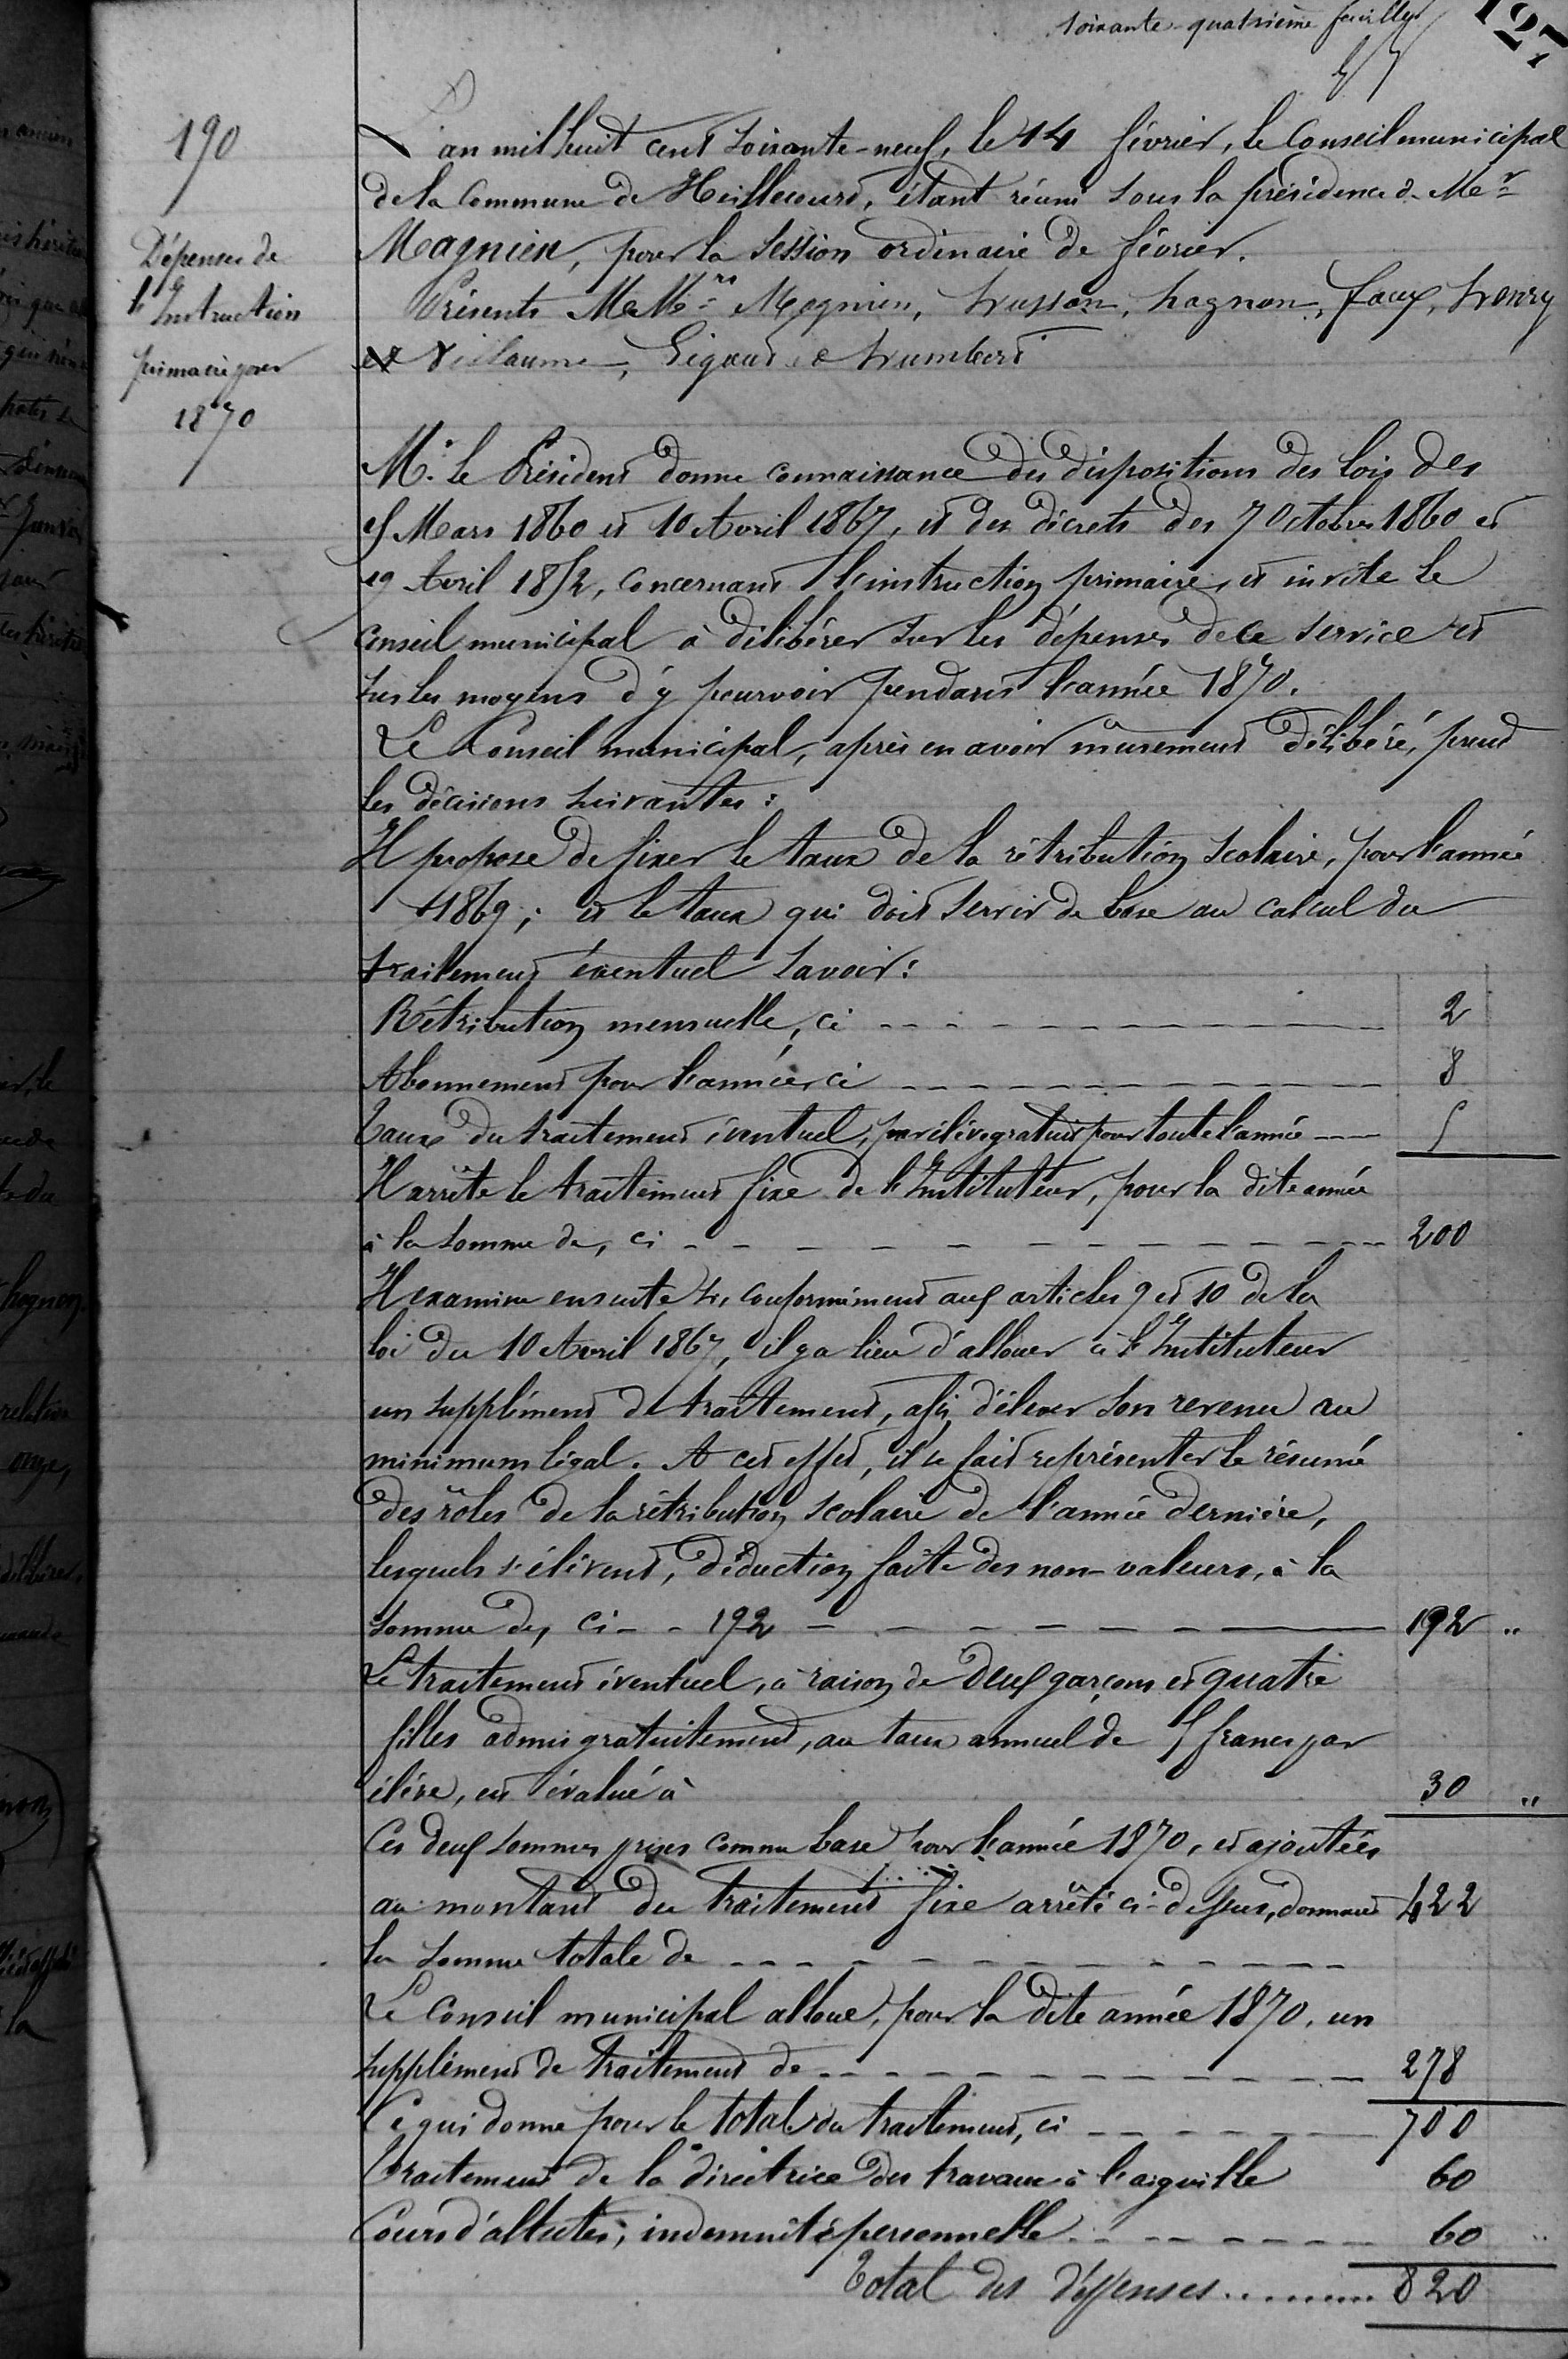 soixante-quatrième feuillet
127
190
Dépenses de
l'Instruction
primaire pour
1870
L'an mil huit cent soixante-neuf, le 14 février, le Conseil municipal
de la Commune de Heillecourt, étant réuni sous la présidence de Mr
Magnien, pour la session ordinaire de février.
Présents MMrs Magnien, husson, hagnon, faux, henry
et Villaume, Ligaud et humbert
M. le Président donne connaissance des dispositions des lois des
15 Mars 1860 et 10 Avril 1867, et des décrets des 7 Octobre 1860 et
19 Avril 1852, concernant l'instruction primaire, et invite le
Conseil municipal à délibérer sur les dépenses de ce service et
sur les moyens d'y pourvoir pendant l'année 1870.
Le Conseil municipal, après en avoir mûrement délibéré, prend
les décisions suivantes :
Il propose de fixer le taux de la rétribution scolaire, pour l'année
1869 ; et le taux qui doit servir de base au calcul du
traitement éventuel savoir :
Rétribution mensuelle, ci 2
Abonnement pour l'année, ci 8
Taux du traitement éventuel, par élève gratuit pour toute l'année 5
Il arrête le traitement fixe de l'Instituteur, pour la dite année
à la somme de, ci 200
Il examine ensuite si, conformément aux articles 9 et 10 de la
loi du 10 Avril 1867, il y a lieu d'allouer à l'Instituteur
un supplément de traitement, afin d'élever son revenu au
minimum légal. A cet effet, il se fait représenter le résumé
des rôles de la rétribution scolaire de l'année dernière,
lesquels s'élèvent, déduction faite des non-valeurs, à la
somme de, ci - - 192 192 "
Le traitement éventuel, à raison de deux garçons et quatre
filles admis gratuitement, au taux annuel de 5 francs par
élève, est évalué à 30 "
Ces deux sommes prises comme base pour l'année 1870, et ajoutées
au montant du traitement fixe arrêté ci-dessus, donnent 422
la somme totale de
Le Conseil municipal alloue, pour la dite année 1870, un
supplément de traitement de 278
Ce qui donne pour le total du traitement, ci 700
Traitement de la directrice des travaux à l'aiguille 60
Cours d'adultes, indemnité personnelle 60 "
Total des dépenses 820